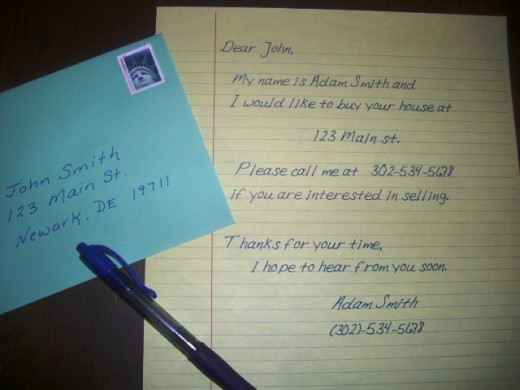 John Smith
123 Main St.
Newark, DE 19711
Dear John,
My name is Adam Smith and
I would like to buy your house at
123 Main st.
Please call me at 302-534-5678
if you are interested in selling.
Thanks for your time,
I hope to hear from you soon.
Adam Smith
(302)-534-5678